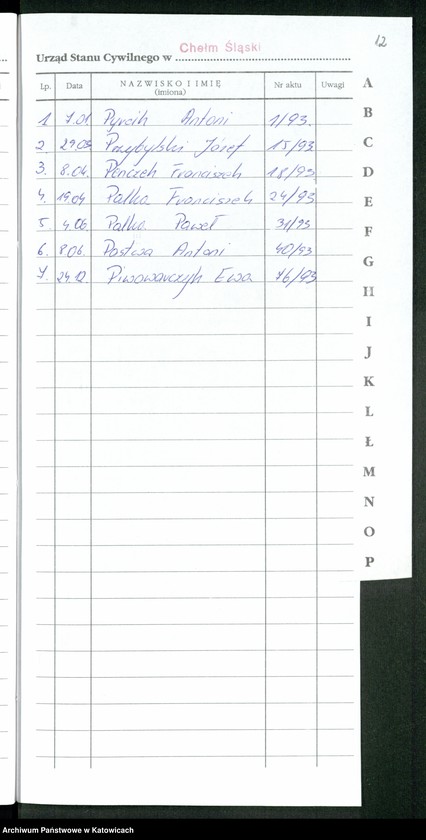 12
Chełm Śląski
Urząd Stanu Cywilnego w
Lp. Data NAZWISKO I IMIĘ (imiona) Nr aktu Uwagi
1 7.01 Pyrcik Antoni 1/93.
2 29.03 Przybylski Józef 15/93
3. 8.04. Penczek Franciszek 18/93
4. 19.04 Palka Franciszek 24/93
5. 4.06. Palka Paweł 31/93
6. 8.06. Postwa Antoni 40/93
7. 24.12. Piwowarczyk Ewa 76/93
A
B
C
D
E
F
G
H
I
J
K
L
Ł
M
N
O
P
Archiwum Państwowe w Katowicach